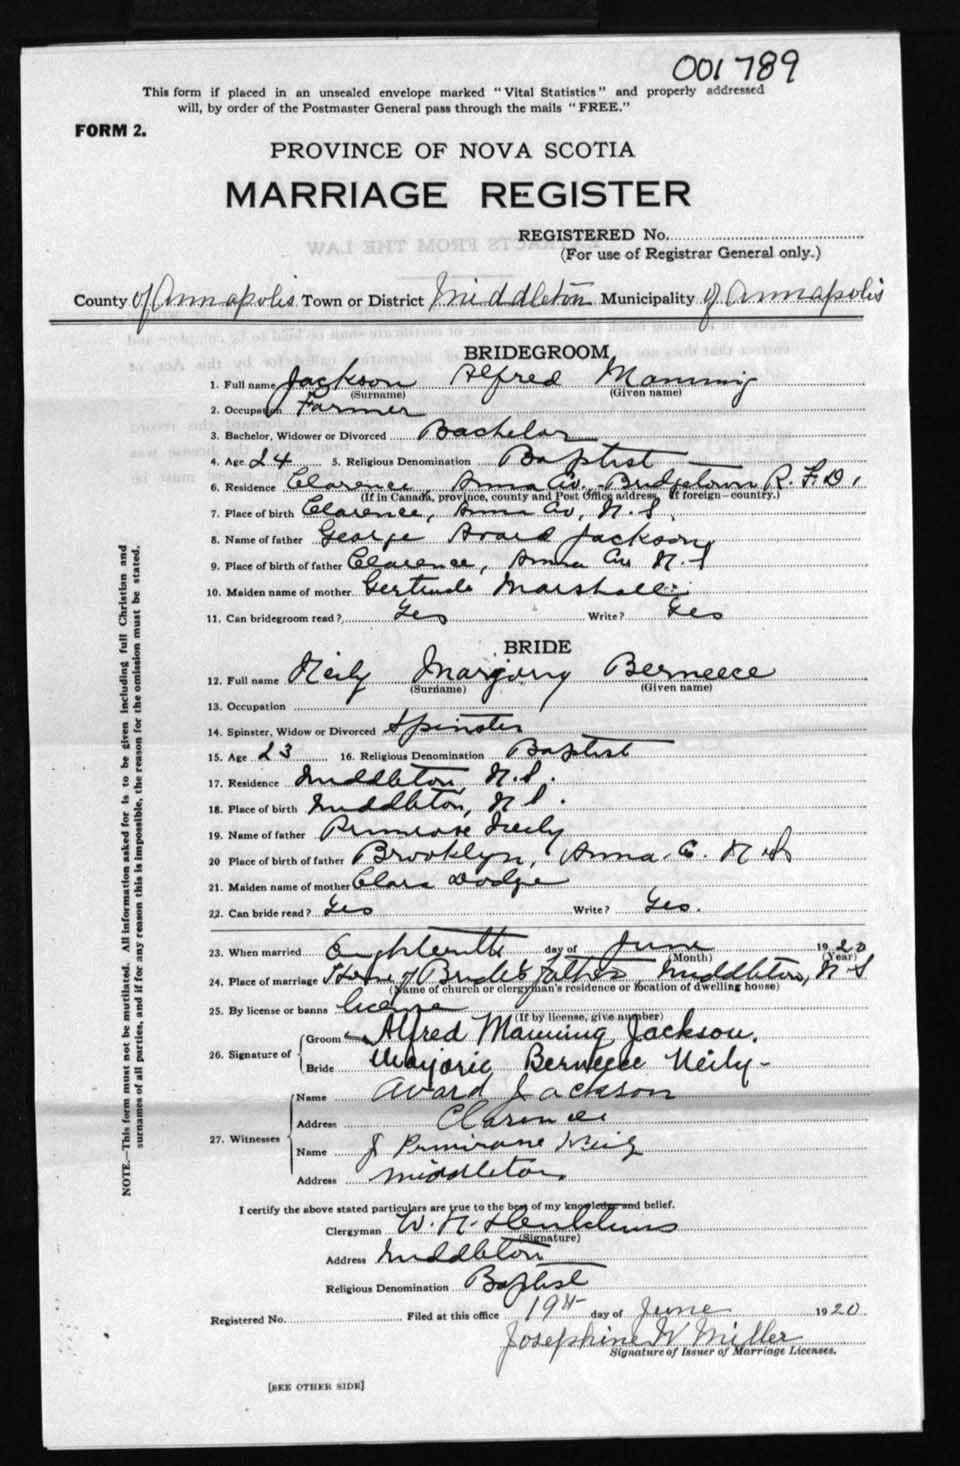 001789
This form if placed in an unsealed envelope marked "Vital Statistics" and properly addressed
will, by order of the Postmaster General pass through the mails "FREE."
FORM 2.
PROVINCE OF NOVA SCOTIA
MARRIAGE REGISTER
REGISTERED No.
(For use of Registrar General only.)
County of Annapolis Town or District Middleton Municipality of Annapolis
BRIDEGROOM
1. Full name Jackson Alfred Manning
(Surname) (Given name)
2. Occupation Farmer
3. Bachelor, Widower or Divorced Bachelor
4. Age 24 5. Religious Denomination Baptist
6. Residence Clarence Anna Co. Bridgetown R. F. D.
(If in Canada, province, county and Post Office address, if foreign—country.)
7. Place of birth Clarence, Anna Co, N. S.
8. Name of father George Avard Jackson
9. Place of birth of father Clarence, Anna Co N. S
10. Maiden name of mother Gertrude Marshall
11. Can bridegroom read? Yes Write? Yes
BRIDE
12. Full name Neily Marjory Berneece
(Surname) (Given name)
13. Occupation
14. Spinster, Widow or Divorced Spinster
15. Age 23 16. Religious Denomination Baptist
17. Residence Middleton, N. S.
18. Place of birth Middleton, N S.
19. Name of father Primrose Neily
20 Place of birth of father Brooklyn, Anna. C. N S
21. Maiden name of mother Clara Dodge
22. Can bride read? Yes Write? Yes.
23. When married Eighteenth day of June 1920
(Month) (Year)
24. Place of marriage Home of Bride's father Middleton, N S
(Name of church or clergyman's residence or location of dwelling house)
25. By license or banns license
(If by license, give number)
26. Signature of Groom Alfred Manning Jackson.
Bride Marjorie Berneece Neily-
27. Witnesses Name Avard Jackson
Address Clarence
Name J Primrose Neily
Address Middleton.
I certify the above stated particulars are true to the best of my knowledge and belief.
Clergyman W. H.
(Signature)
Address Middleton
Religious Denomination Baptist
Registered No. Filed at this office 19th day of June 1920
Josephine W Miller
Signature of Issuer of Marriage Licenses.
[SEE OTHER SIDE]
NOTE.—This form must not be mutilated. All information asked for is to be given including full Christian and
surnames of all parties, and if for any reason this is impossible, the reason for the omission must be stated.